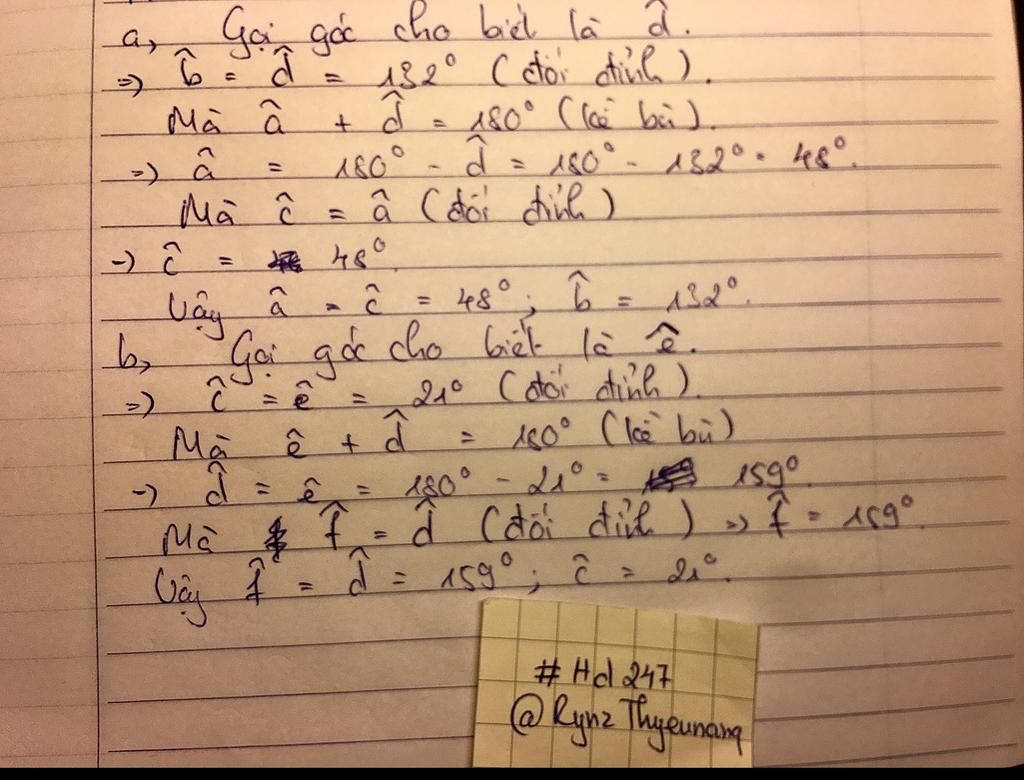 a, Gọi góc cho biết là d̂.
=> b̂ = d̂ = 132° (đối đỉnh).
Mà â + d̂ = 180° (kề bù).
=> â = 180° - d̂ = 180° - 132° = 48°.
Mà ĉ = â (đối đỉnh)
-> ĉ = 48°.
Vậy â = ĉ = 48°; b̂ = 132°.
b, Gọi góc cho biết là ê.
=> ĉ = ê = 21° (đối đỉnh).
Mà ê + d̂ = 180° (kề bù)
-> d̂ = ê = 180° - 21° = 159°.
Mà f̂ = d̂ (đối đỉnh) => f̂ = 159°.
Vậy f̂ = d̂ = 159°; ĉ = 21°.
# Hd 247
@ Rynz Thyeunang